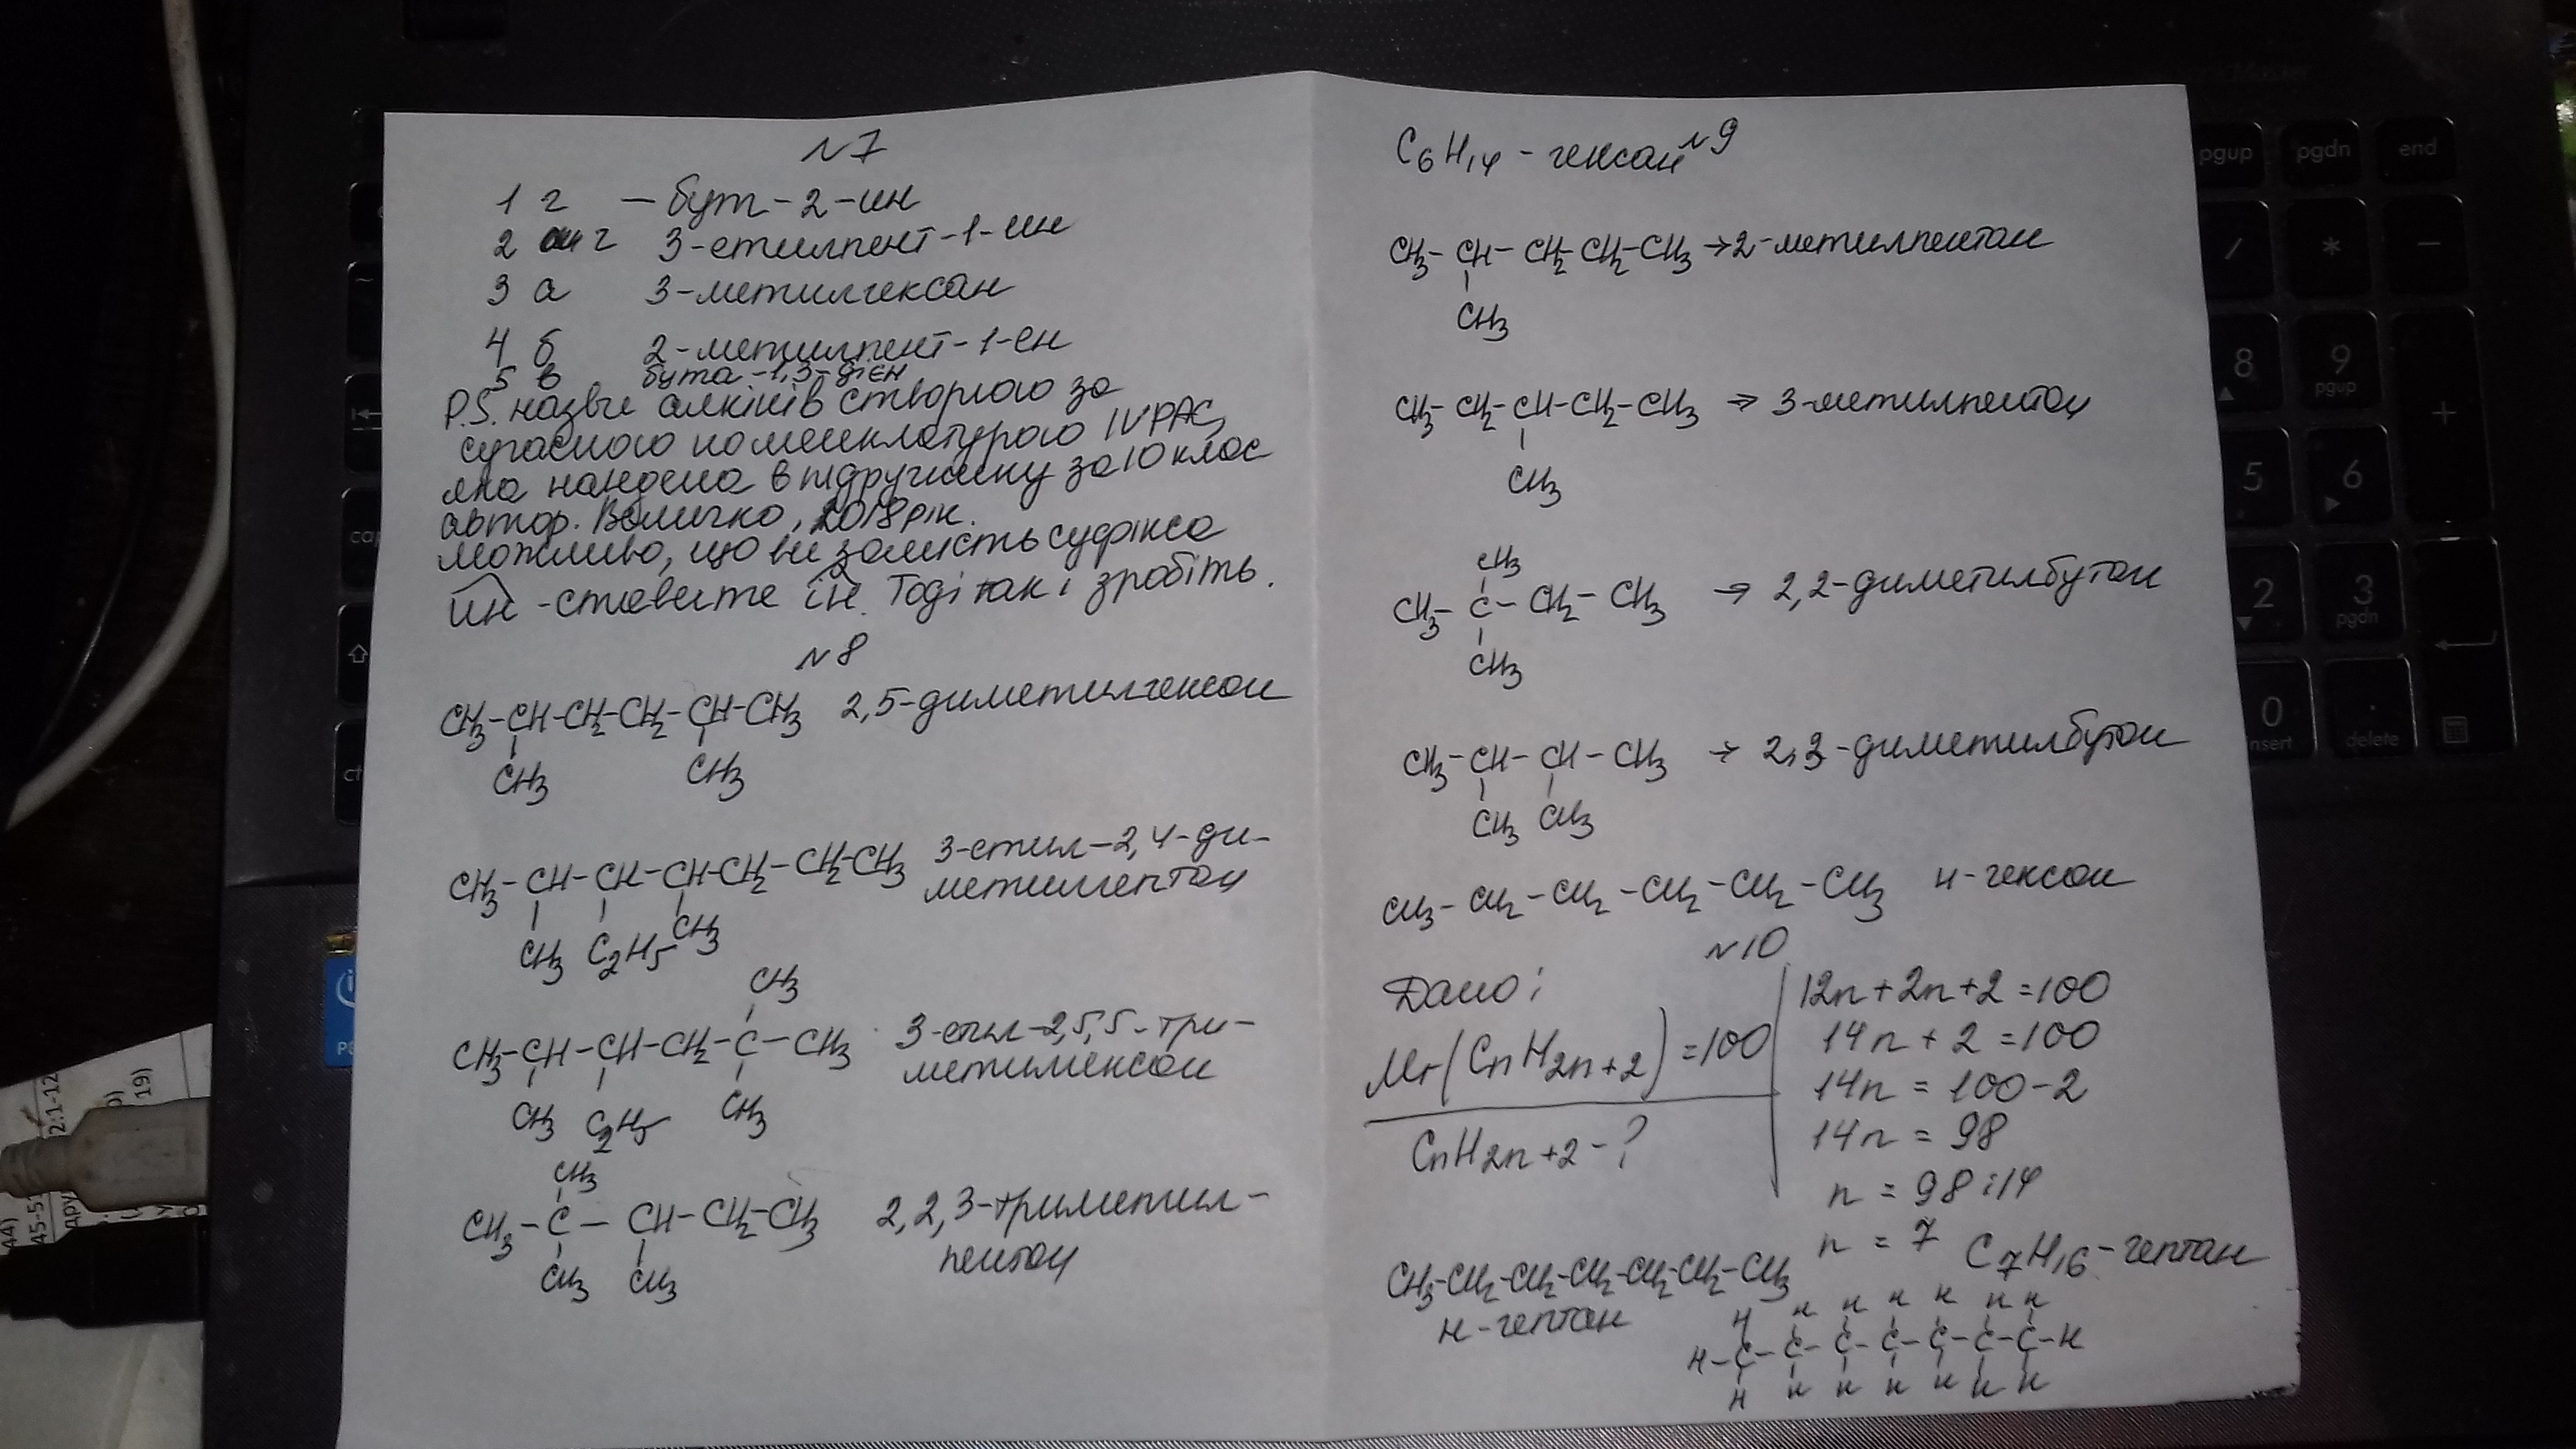 №7
1 г — бут-2-ин
2 г 3-етилпент-1-ин
3 а 3-метилгексан
4 б 2-метилпент-1-ен
5 в бута-1,3-дієн
P.S. назви алкінів створюю за
сучасною номенклатурою IUPAC,
яка надена в підручнику за 10 клас
автор. Величко, 2018 рік.
Можливо, що ви замість суфікса
ин - ставите ін. Тоді так і зробіть.
№8
CH3-CH-CH2-CH2-CH-CH3 2,5-диметилгексан
CH3 CH3
CH3-CH-CH-CH-CH2-CH2-CH3 3-етил-2,4-ди-
метилгептан
CH3 C2H5 CH3
CH3
CH3-CH-CH-CH2-C-CH3 3-етил-2,5,5-три-
метилгексан
CH3 C2H5 CH3
CH3
CH3-C-CH-CH2-CH3 2,2,3-триметил-
пентан
CH3 CH3
C6H14 - гексан №9
CH3-CH-CH2-CH2-CH3 → 2-метилпентан
CH3
CH3-CH2-CH-CH2-CH3 → 3-метилпентан
CH3
CH3
CH3-C-CH2-CH3 → 2,2-диметилбутан
CH3
CH3-CH-CH-CH3 → 2,3-диметилбутан
CH3 CH3
CH3-CH2-CH2-CH2-CH2-CH3 н-гексан
№10
Дано:
Mr(CnH2n+2)=100
CnH2n+2-?
12n+2n+2=100
14n+2=100
14n=100-2
14n=98
n=98:14
n=7 C7H16-гептан
CH3-CH2-CH2-CH2-CH2-CH2-CH3
н-гептан
H H H H H H H
H-C-C-C-C-C-C-C-H
H H H H H H H
pgup pgdn end
/ * -
8 9 pgup
+
5 6
2 3 pgdn
0 . delete